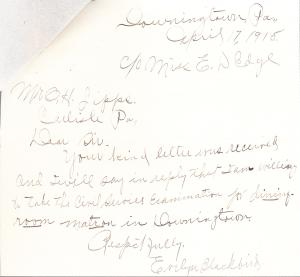 Downingtown, Pa.
April 17, 1915
c/o Miss E. D Edge
Mr O.H. Lipps.
Carlisle Pa,
Dear Sir.
Your kind letter was received
and I will say in reply that I am willing
to take the Civil Service Examination for dining-
room matron in Downingtown.
Respectfully.
Evelyn Blackbird